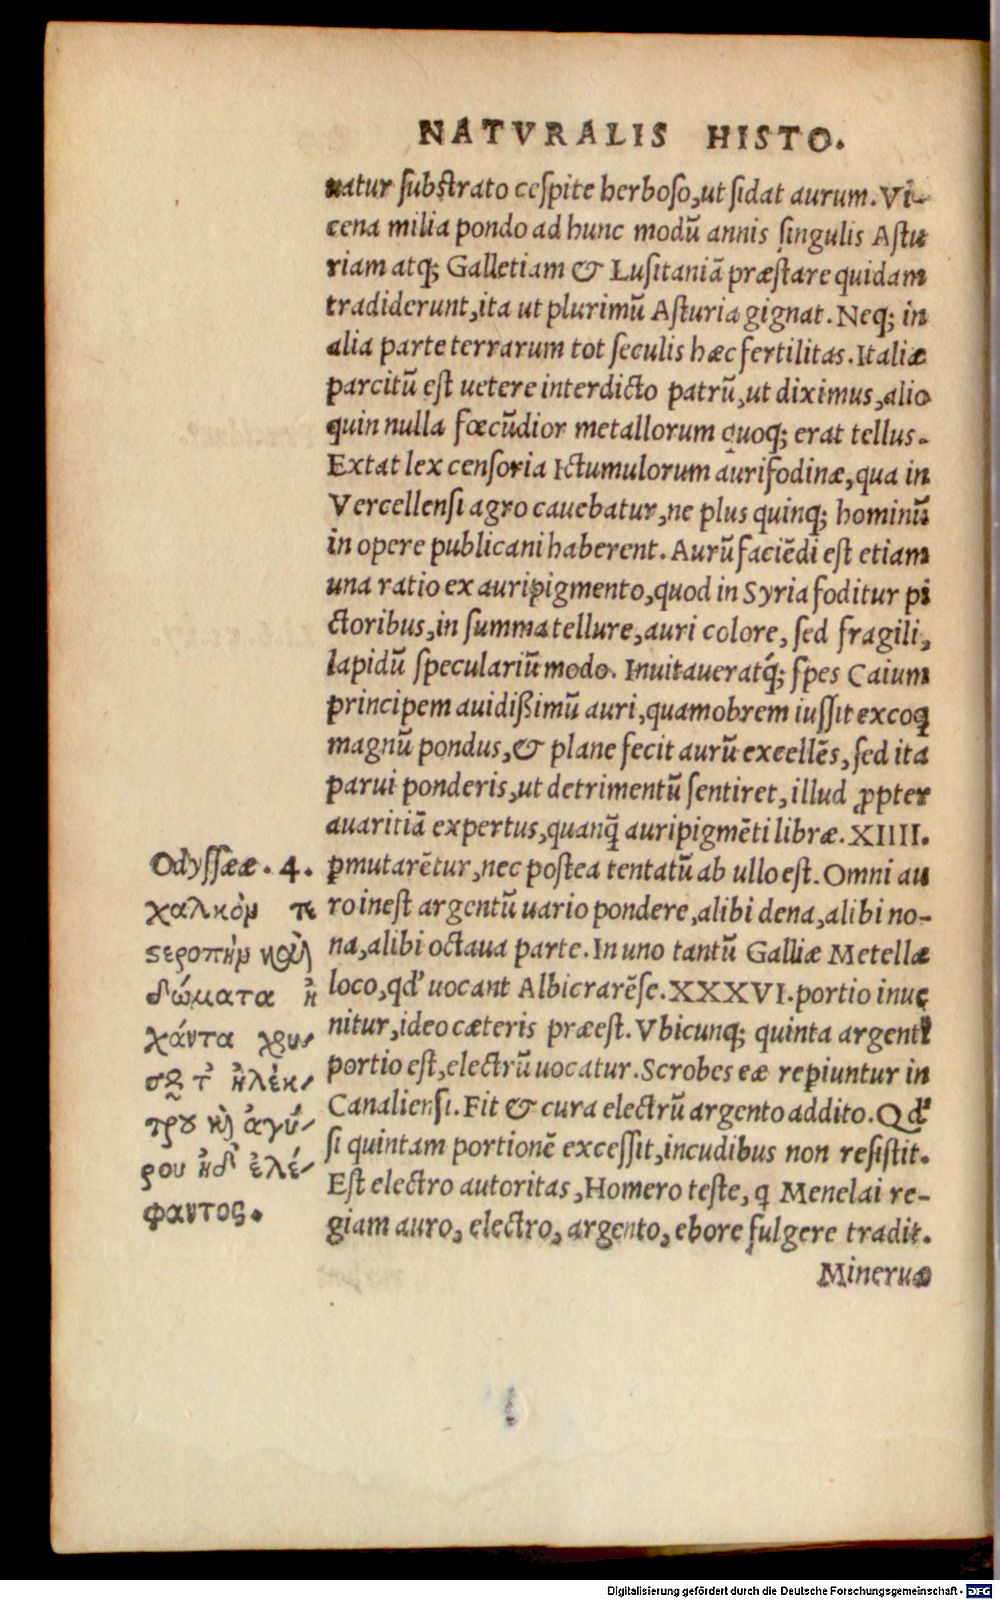 NATVRALIS HISTO.
natur substrato cespite herboso,ut sidat aurum.Vi-
cena milia pondo ad hunc modū annis singulis Astu
riam atq; Galletiam & Lusitaniā præstare quidam
tradiderunt,ita ut plurimū Asturia gignat.Neq; in
alia parte terrarum tot seculis hæc fertilitas.Italiæ
parcitū est uetere interdicto patrū,ut diximus,alio
quin nulla fœcūdior metallorum quoq; erat tellus.
Extat lex censoria Ictumulorum aurifodinæ,qua in
Vercellensi agro cauebatur,ne plus quinq; hominū
in opere publicani haberent.Aurū faciēdi est etiam
una ratio ex auripigmento,quod in Syria foditur pi
ctoribus,in summa tellure,auri colore, sed fragili,
lapidū speculariū modo. Inuitaueratq́; spes Caium
principem auidißimū auri,quamobrem iussit excoq̨
magnū pondus,& plane fecit aurū excellēs,sed ita
parui ponderis,ut detrimentū sentiret,illud ꝓpter
auaritiā expertus,quanq̄ auripigmēti libræ.XIIII.
ꝑmutarētur,nec postea tentatū ab ullo est.Omni au
ro inest argentū uario pondere,alibi dena,alibi no-
na,alibi octaua parte.In uno tantū Galliæ Metellæ
loco,qđ uocant Albicrarēse.XXXVI.portio inue
nitur,ideo cæteris præest.Vbicunq; quinta argenti
portio est,electrū uocatur.Scrobes eæ reꝑiuntur in
Canaliensi.Fit & cura electrū argento addito.Qđ
si quintam portionē excessit,incudibus non resistit.
Est electro autoritas,Homero teste, q Menelai re-
giam auro, electro, argento, ebore fulgere tradit.
Mineruæ
Odyssææ.4.
χαλκόμ τε
ςεροπὴμ καὶ
δώματα ἠ
χάντα χρυ-
σοῦ τ᾽ ἠλέκ-
τρου καὶ ἀγύ-
ρου ἠδ᾽ ἐλέ-
φαντος.
Digitalisierung gefördert durch die Deutsche Forschungsgemeinschaft - DFG